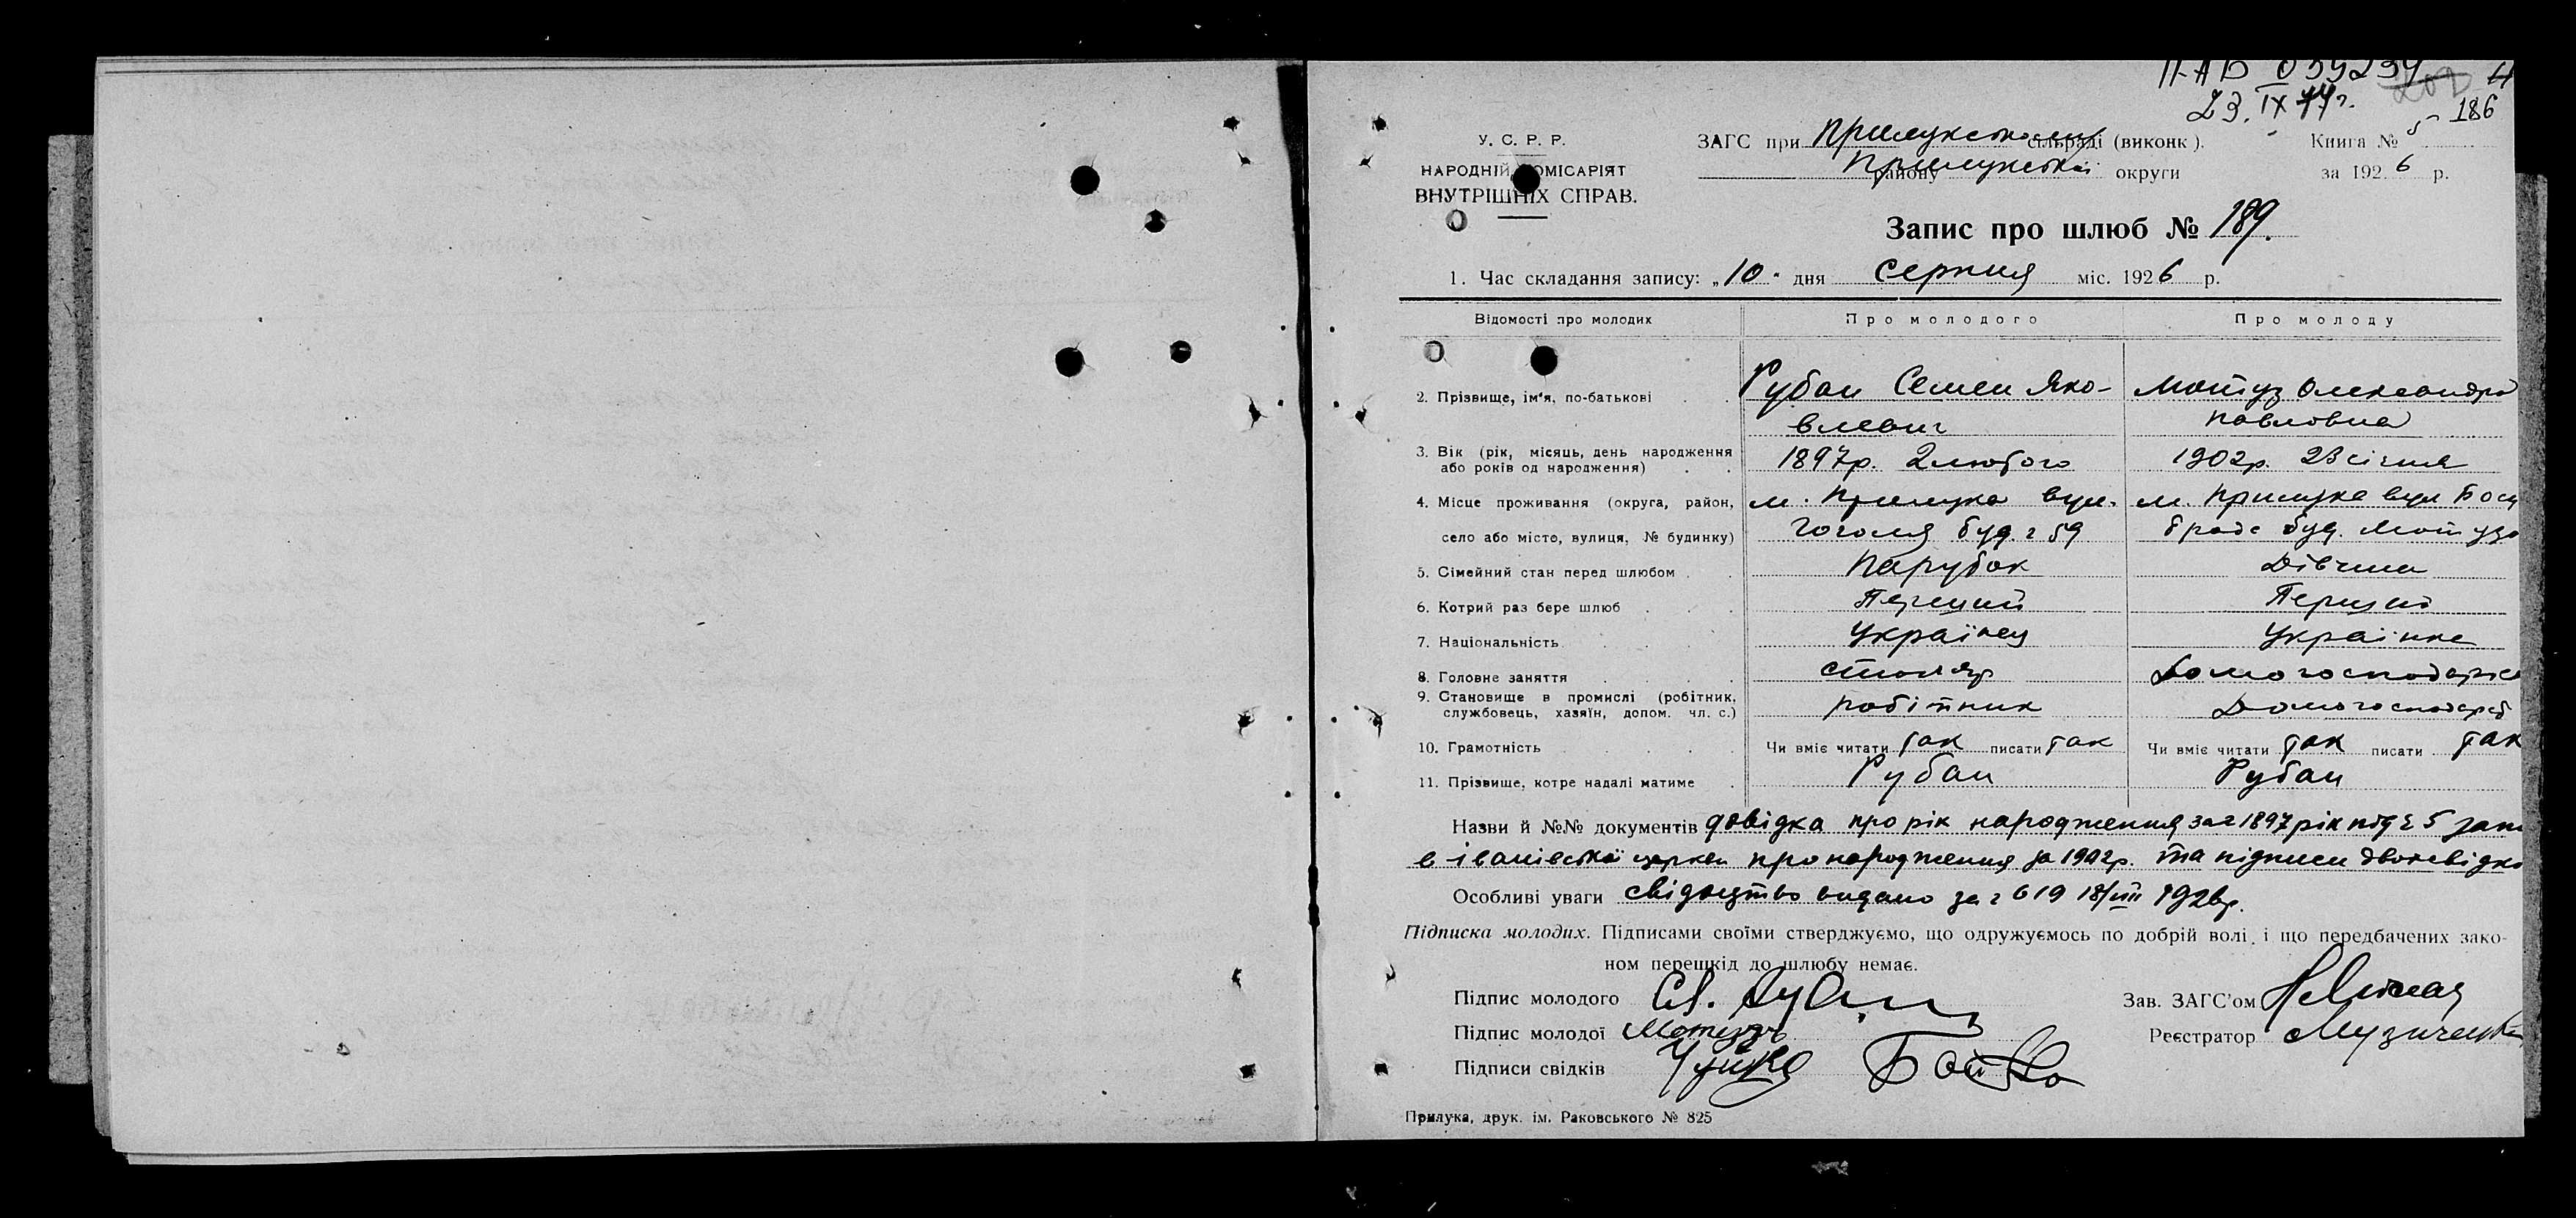 ПАВ 039234
23.IX 77 г.
186
У. С. Р. Р.
НАРОДНІЙ КОМІСАРІЯТ
ВНУТРІШНІХ СПРАВ.
ЗАГС при Прилукському сільраді (виконк).
району Прилуцької округи
Книга № 5
за 1926 р.
Запис про шлюб № 189.
1. Час складання запису: „10" дня серпня міс. 1926 р.
Відомості про молодих Про молодого Про молоду
2. Прізвище, ім'я, по-батькові Рубан Семен Яко- Мотуз Олександра
влевич Павловна
3. Вік (рік, місяць, день народження
або років од народження) 1897р. 2 лютого 1902р. 23 січня
4. Місце проживання (округа, район, м. Прилука вул. м. Прилука вул
село або місто, вулиця, № будинку) Гоголя буд. ч 59 буд. Мотуза
5. Сімейний стан перед шлюбом Парубок Дівчина
6. Котрий раз бере шлюб Перший Перший
7. Національність Українец Українка
8. Головне заняття столяр Домогосподарка
9. Становище в промислі (робітник,
службовець, хазяїн, допом. чл. с.) робітник Домогосподар
10. Грамотність Чи вміє читати так писати так Чи вміє читати так писати так
11. Прізвище, котре надалі матиме Рубан Рубан
Назви й №№ документів довідка про рік народження за 1897 рік під ч 5
Іванівської церкви про народження за 1902р. та підписи двох свідк
Особливі уваги свідоцтво видано за ч 619 18/VIII 1926р.
Підписка молодих. Підписами своїми стверджуємо, що одружуємось по добрій волі і що передбачених зако-
ном перешкід до шлюбу немає.
Підпис молодого СЯ. Рубан
Зав. ЗАГС'ом
Підпис молодої Мотузъ
Реєстратор Музиченко
Підписи свідків Бойко
Прилука, друк. ім. Раковського № 825